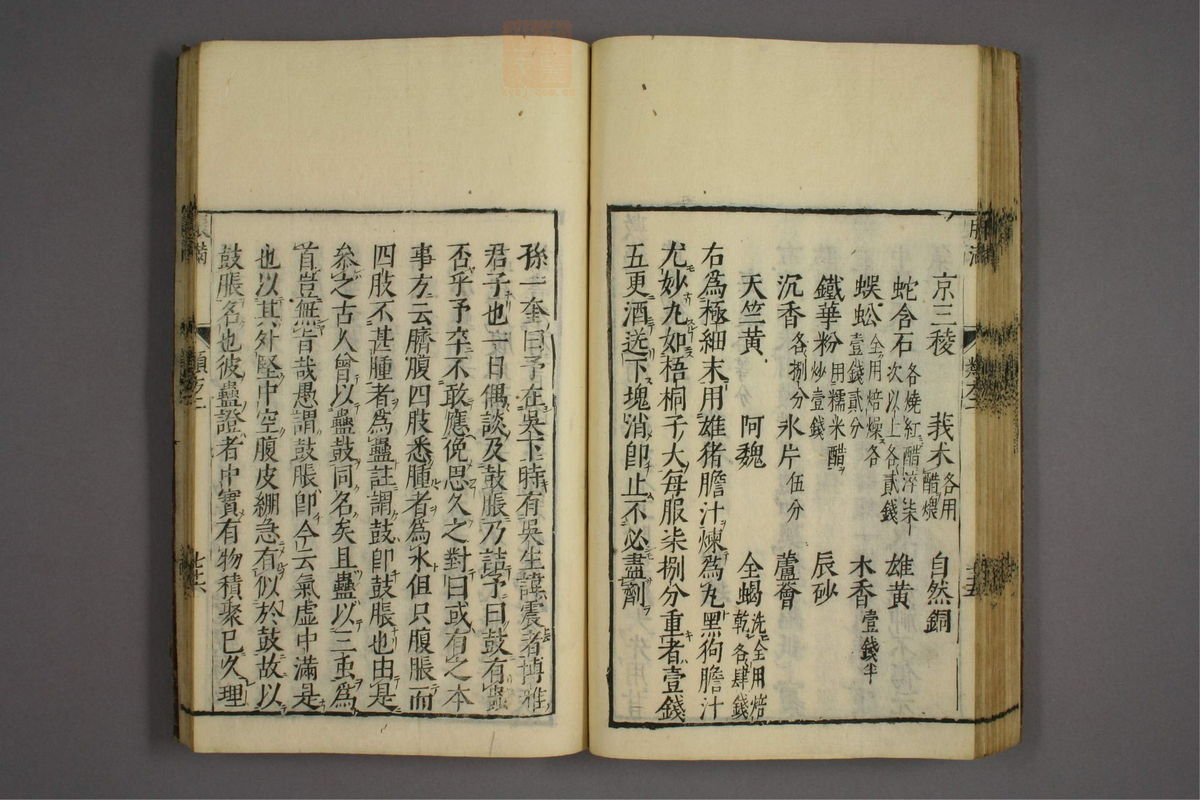 京三稜 莪朮各用醋煨 自然銅
蛇含石各燒紅醋淬柒次以上各貳錢 雄黃
蜈蚣全用焙燥各壹錢貳分 木香壹錢半
鐵華粉用糯米醋炒壹錢 辰砂
沉香各捌分 氷片伍分 蘆薈
天竺黃 阿魏 全蝎洗全用焙乾各肆錢
右為極細末用雄猪膽汁煉為丸黑狗膽汁
尤妙丸如梧桐子大每服柒捌分重者壹錢
五更酒送下塊消卽止不必盡劑
孫一奎曰予在吳下時有吳生諱震者博雅
君子也一日偶談及鼓脹乃詰予曰鼓有蠱
否乎予卒不敢應俛思久之對曰或有之本
事方云臍腹四肢悉腫者為水但只腹脹而
四肢不甚腫者為蠱註謂鼓卽鼓脹也由是
叅之古人曾以蠱鼓同名矣且蠱以三虫為
首豈無旨哉愚謂鼓脹卽今云氣虛中滿是
也以其外堅中空腹皮綳急有似於鼓故以
鼓脹名也彼蠱證者中實有物積聚已久理
脹滿 類方二 七十六